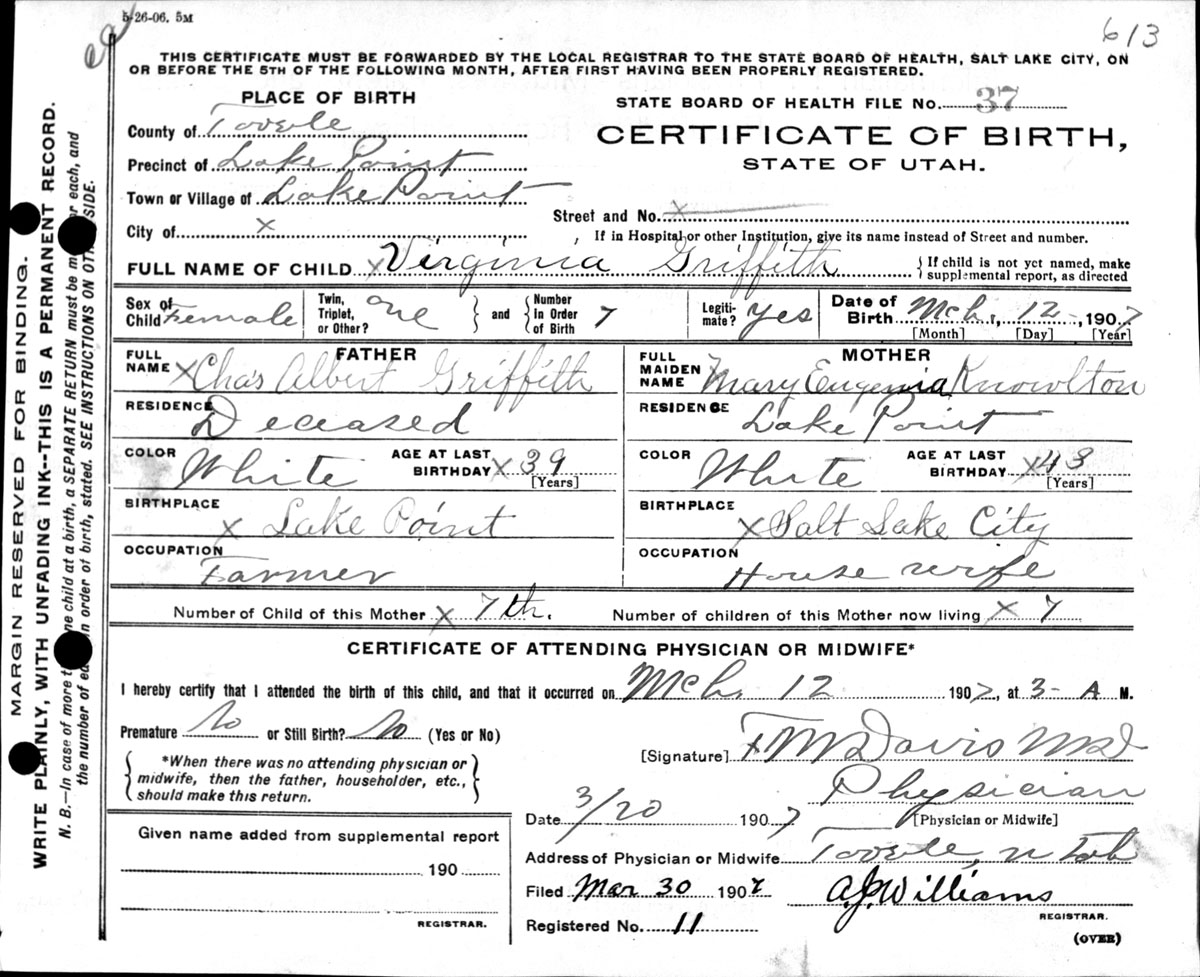 5-26-06. 5M
613
THIS CERTIFICATE MUST BE FORWARDED BY THE LOCAL REGISTRAR TO THE STATE BOARD OF HEALTH, SALT LAKE CITY, ON
OR BEFORE THE 5TH OF THE FOLLOWING MONTH, AFTER FIRST HAVING BEEN PROPERLY REGISTERED.
PLACE OF BIRTH
STATE BOARD OF HEALTH FILE No. 37
County of Tooele
CERTIFICATE OF BIRTH,
Precinct of Lake Point
STATE OF UTAH.
Town or Village of Lake Point
Street and No. x
City of x
If in Hospital or other Institution, give its name instead of Street and number.
FULL NAME OF CHILD x Virginia Griffith { If child is not yet named, make
supplemental report, as directed
Sex of Child Female
Twin, Triplet, or Other? One } and { Number In Order of Birth 7
Legitimate? Yes
Date of Birth Mch. 12, 1907
[Month] [Day] [Year]
FATHER
FULL NAME x Chas Albert Griffith
MOTHER
FULL MAIDEN NAME x Mary Eugenia Knowlton
RESIDENCE Deceased
RESIDENCE Lake Point
COLOR White AGE AT LAST BIRTHDAY x 39 [Years]
COLOR White AGE AT LAST BIRTHDAY x 43 [Years]
BIRTHPLACE x Lake Point
BIRTHPLACE x Salt Lake City
OCCUPATION Farmer
OCCUPATION House wife
Number of Child of this Mother x 7th. Number of children of this Mother now living x 7
CERTIFICATE OF ATTENDING PHYSICIAN OR MIDWIFE*
I hereby certify that I attended the birth of this child, and that it occurred on Mch. 12 1907, at 3- A M.
Premature No or Still Birth? No (Yes or No)
[Signature] x M Davis MD
{ *When there was no attending physician or
midwife, then the father, householder, etc.,
should make this return. }
Physician
[Physician or Midwife]
Date 3/20 1907
Given name added from supplemental report
190
REGISTRAR.
Address of Physician or Midwife Tooele, Utah
Filed Mar 30 1907 A.J. Williams
REGISTRAR.
Registered No. 11
(OVER)
MARGIN RESERVED FOR BINDING.
WRITE PLAINLY, WITH UNFADING INK--THIS IS A PERMANENT RECORD.
N. B.—In case of more t ne child at a birth, a SEPARATE RETURN must be m r each, and
the number of ea n order of birth, stated. SEE INSTRUCTIONS ON OT SIDE.